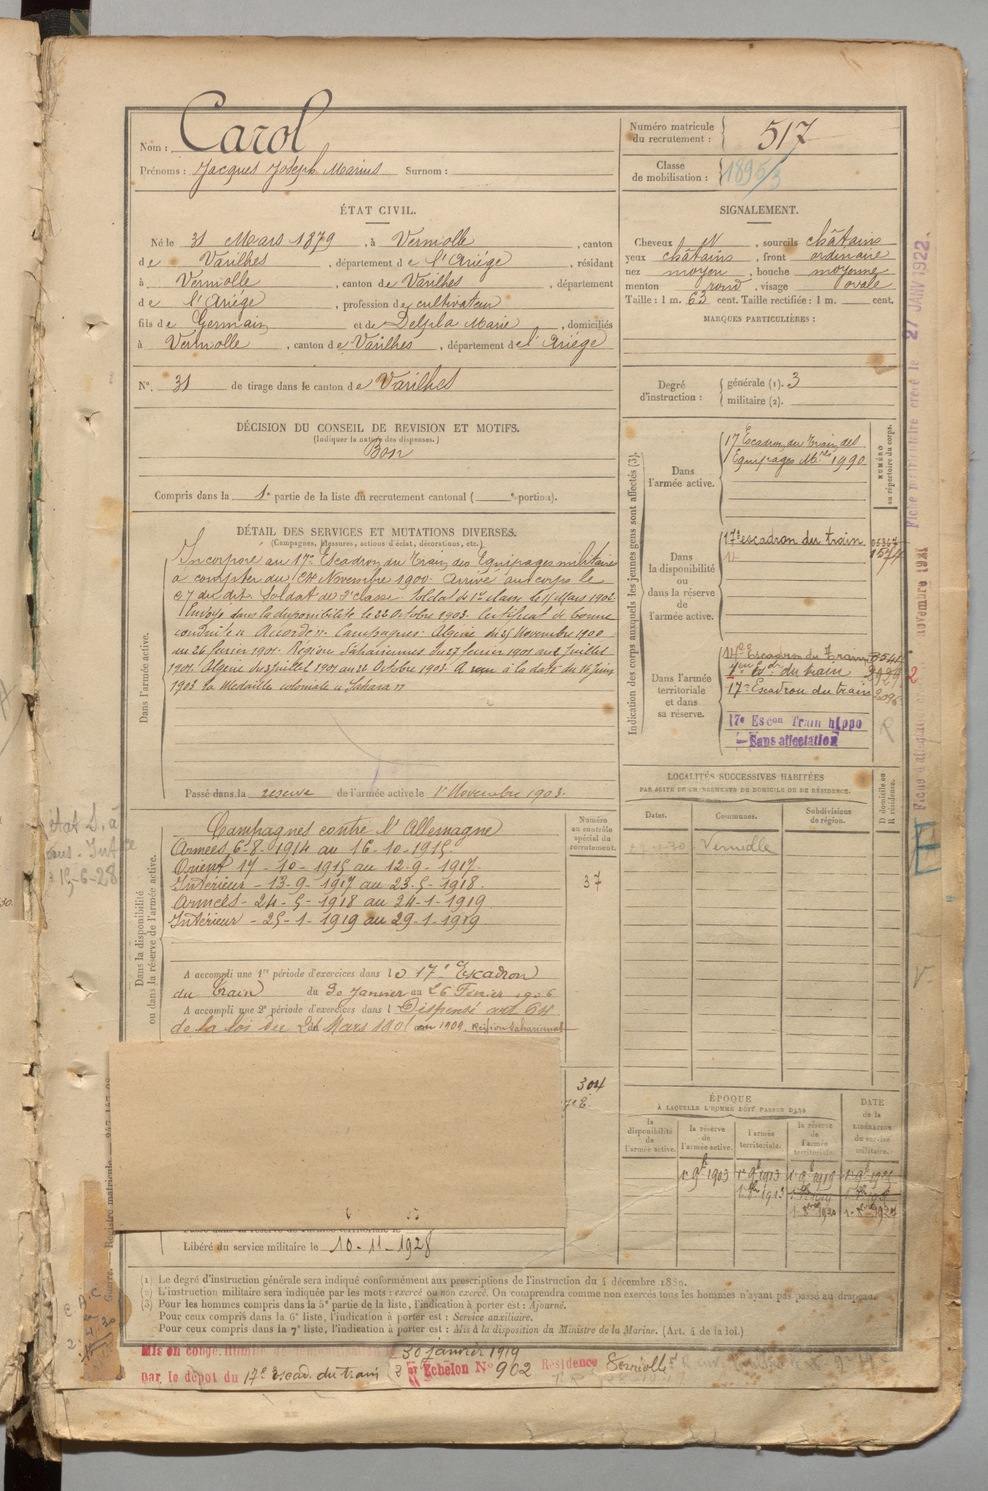 Nom : Carol
Prénoms : Jacques Joseph Marius Surnom :
Numéro matricule du recrutement : 517
Classe de mobilisation : 1895/3
ÉTAT CIVIL.
Né le 31 Mars 1879, à Verniolle, canton
de Varilhes, département de l'Ariège, résidant
à Verniolle, canton de Varilhes, département
de l'Ariège, profession de cultivateur
fils de Germain et de Delpla Marie, domiciliés
à Verniolle, canton de Varilhes, département de l'Ariège
N° 31 de tirage dans le canton de Varilhes
DÉCISION DU CONSEIL DE REVISION ET MOTIFS.
(Indiquer la nature des dispenses.)
Bon
Compris dans la 1e partie de la liste du recrutement cantonal ( e portion).
SIGNALEMENT.
Cheveux N, sourcils châtains
yeux châtains, front ordinaire
nez moyen, bouche moyenne
menton rond, visage ovale
Taille : 1 m. 63 cent. Taille rectifiée : 1 m. cent.
MARQUES PARTICULIÈRES :
Degré d'instruction : générale (1). 3
militaire (2).
Indication des corps auxquels les jeunes gens sont affectés (3).
NUMÉRO au répertoire du corps.
Dans l'armée active.
17 Escadron du Train des
Equipages Mres 1990
Dans la disponibilité ou dans la réserve de l'armée active.
17e escadron du train
Dans l'armée territoriale et dans sa réserve.
Escadron du Train
du train
17e Escadron du train
17e Escon Train hippo
— Sans affectation
DÉTAIL DES SERVICES ET MUTATIONS DIVERSES.
(Campagnes, blessures, actions d'éclat, décorations, etc.)
Dans l'armée active.
Incorporé au 17e Escadron du Train des Equipages militaires
à compter du 14 Novembre 1900. Arrivé au corps le
dit Soldat de 2e classe. Soldat de 1re classe le Mars 1902
Envoyé dans la disponibilité le 22 Octobre 1903. Certificat de bonne
conduite Accordé. Campagnes: Algérie du 25 Novembre 1900
au 26 février 1901. Région Saharienne du 27 février 1901 au Juillet
1901. Algérie du Juillet 1901 au 22 Octobre 1903. A reçu à la date du 14 Juin
1903 la Médaille coloniale Sahara
Passé dans la réserve de l'armée active le 1r Novembre 1903.
Dans la disponibilité ou dans la réserve de l'armée active.
Numéro au contrôle spécial du recrutement.
37
Campagnes contre l'Allemagne
Armées 6-8-1914 au 16-10-1915
Orient 17-10-1915 au 12-9-1917.
Intérieur - 13-9-1917 au 23-5-1918.
Armées - 24-5-1918 au 24-1-1919
Intérieur - 25-1-1919 au 29-1-1919
A accompli une 1re période d'exercices dans le 17e Escadron
du Train du 30 Janvier au 26 Février 1906
A accompli une 2e période d'exercices dans l Dispensé art
de la loi du Mars
304
LOCALITÉS SUCCESSIVES HABITÉES
PAR SUITE DE CHANGEMENTS DE DOMICILE OU DE RÉSIDENCE.
Dates. Communes. Subdivisions de région. D domicile ou R résidence.
Verniolle
ÉPOQUE
À LAQUELLE L'HOMME DOIT PASSER DANS
DATE de la LIBÉRATION du service militaire.
la disponibilité de l'armée active. la réserve de l'armée active. l'armée territoriale. la réserve de l'armée territoriale.
Libéré du service militaire le 10-11-1928
(1) Le degré d'instruction générale sera indiqué conformément aux prescriptions de l'instruction du 4 décembre 1889.
(2) L'instruction militaire sera indiquée par les mots : exercé ou non exercé. On comprendra comme non exercés tous les hommes n'ayant pas passé au drapeau.
(3) Pour les hommes compris dans la 5e partie de la liste, l'indication à porter est : Ajourné.
Pour ceux compris dans la 6e liste, l'indication à porter est : Service auxiliaire.
Pour ceux compris dans la 7e liste, l'indication à porter est : Mis à la disposition du Ministre de la Marine. (Art. 4 de la loi.)
Mis en congé illimité de démobilisation le 30 janvier 1919
par le dépôt du 17e escad. du train Échelon N° 902 Résidence
27 JANV 1922.